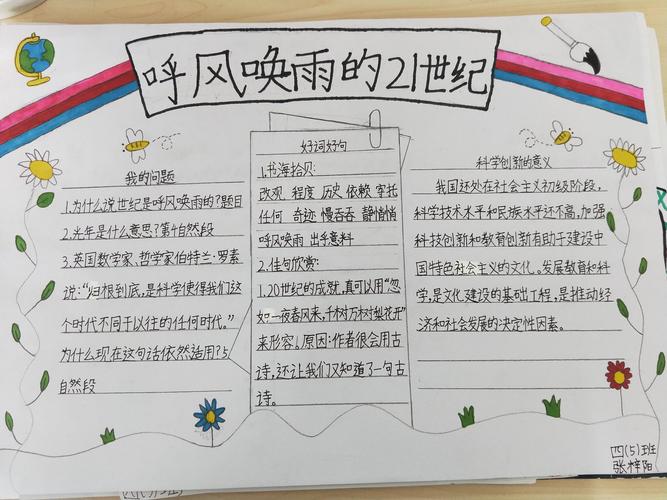 呼风唤雨的21世纪
我的问题
1.为什么说世纪是呼风唤雨的?题目
2.光年是什么意思?第4自然段
3.英国数学家、哲学家伯特兰·罗素
说:“归根到底,是科学使得我们这
个时代不同于以往的任何时代。”
为什么现在这句话依然适用?5
自然段
好词好句
1.书海拾贝:
改观 程度 历史 依赖 寄托
任何 奇迹 慢吞吞 静悄悄
呼风唤雨 出乎意料
2.佳句欣赏:
1.20世纪的成就,真可以用“忽
如一夜春风来,千树万树梨花开”
来形容。原因:作者很会用古
诗,还让我们又知道了一句古
诗。
科学创新的意义
我国还处在社会主义初级阶段,
科学技术水平和民族水平还不高,加强
科技创新和教育创新有助于建设中
国特色社会主义的文化。发展教育和科
学,是文化建设的基础工程,是推动经
济和社会发展的决定性因素。
四(5)班
张梓阳